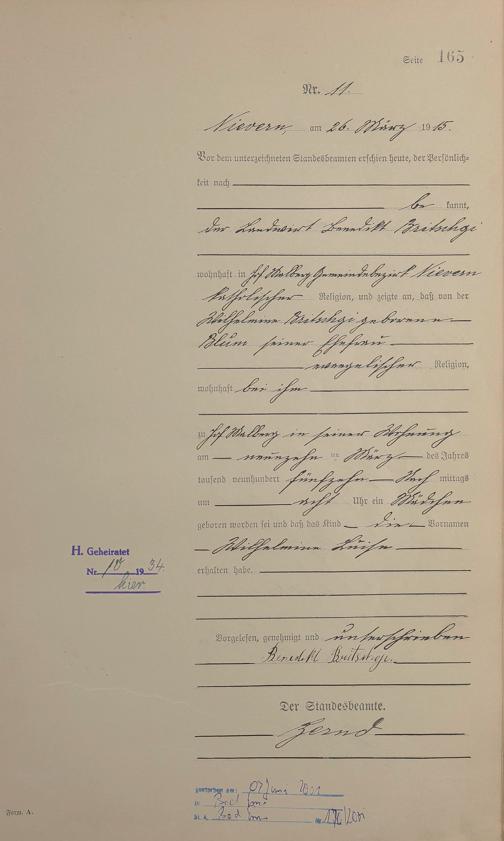 Seite 165
Nr. 11.
Nievern, am 26. März 1915.
Vor dem unterzeichneten Standesbeamten erschien heute, der Persönlich-
keit nach
be kannt,
der Landwirt Benedikt Britschgi
wohnhaft in Hof Malberg Gemeindebezirk Nievern
katholischer Religion, und zeigte an, daß von der
Wilhelmine Britschgi geborene
Blum seiner Ehefrau
evangelischer Religion,
wohnhaft bei ihm
zu Hof Malberg in seiner Wohnung
am neunzehn ten März des Jahres
tausend neunhundert fünfzehn Nach mittags
um acht Uhr ein Mädchen
geboren worden sei und daß das Kind die Vornamen
Wilhelmine Luise
H. Geheiratet
erhalten habe.
Nr. 10 1934
hier
Vorgelesen, genehmigt und unterschrieben
Benedikt Britschgi.
Der Standesbeamte.
gestorben am: 07 Juni
in Bad Ems
St. A. Bad Ems Nr.
Form. A.